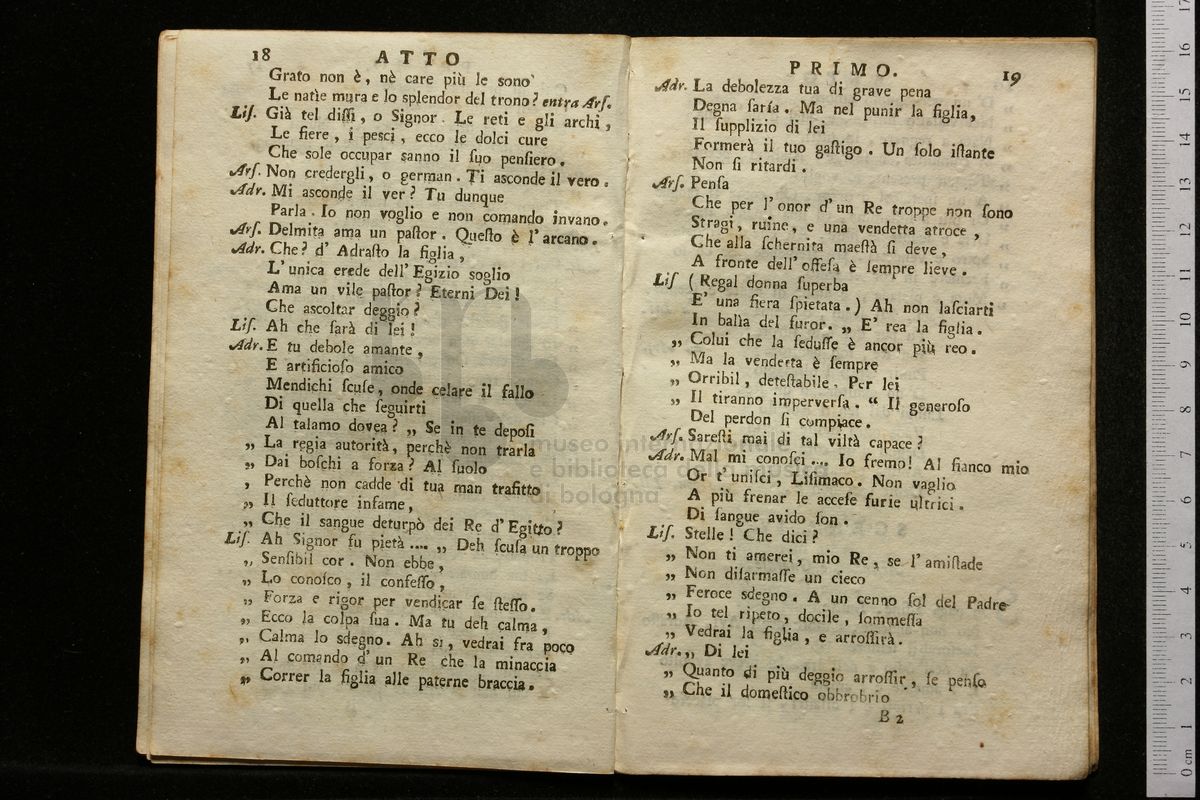 18 ATTO
Grato non è, nè care più le sono
Le natìe mura e lo splendor del trono? entra Arſ.
Liſ. Già tel diſſi, o Signor. Le reti e gli archi,
Le fiere, i peſci, ecco le dolci cure
Che sole occupar sanno il ſuo penſiero.
Arſ. Non credergli, o german. Ti asconde il vero.
Adr. Mi asconde il ver? Tu dunque
Parla. Io non voglio e non comando invano.
Arſ. Delmita ama un paſtor. Queſto è l'arcano.
Adr. Che? d' Adraſto la figlia,
L'unica erede dell' Egizio soglio
Ama un vile paſtor? Eterni Dei!
Che ascoltar deggio?
Liſ. Ah che ſarà di lei!
Adr. E tu debole amante,
E artificioſo amico
Mendichi ſcuſe, onde celare il fallo
Di quella che ſeguirti
Al talamo dovea? „ Se in te depoſi
„ La regia autorità, perchè non trarla
„ Dai boſchi a forza? Al ſuolo
, Perchè non cadde di tua man trafitto
„ Il ſeduttore infame,
„ Che il sangue deturpò dei Re d'Egitto?
Liſ. Ah Signor fu pietà .... „ Deh ſcuſa un troppo
„ Senſibil cor. Non ebbe,
„ Lo conoſco, il confeſſo,
„ Forza e rigor per vendicar ſe ſteſſo.
„ Ecco la colpa ſua. Ma tu deh calma,
„ Calma lo sdegno. Ah sì, vedrai fra poco
„ Al comando d'un Re che la minaccia
„ Correr la figlia alle paterne braccia.
PRIMO. 19
Adr. La debolezza tua di grave pena
Degna ſarìa. Ma nel punir la figlia,
Il ſupplizio di lei
Formerà il tuo gaſtigo. Un ſolo iſtante
Non ſi ritardi.
Arſ. Penſa
Che per l'onor d'un Re troppe non ſono
Stragi, ruine, e una vendetta atroce,
Che alla ſchernita maeſtà ſi deve,
A fronte dell' offeſa è ſempre lieve.
Liſ (Regal donna ſuperba
E' una fiera ſpietata.) Ah non laſciarti
In balìa del furor. „ E' rea la figlia.
„ Colui che la ſeduſſe è ancor più reo.
„ Ma la vendetta è ſempre
„ Orribil, deteſtabile. Per lei
„ Il tiranno imperverſa. “ Il generoſo
Del perdon ſi compiace.
Arſ. Sareſti mai di tal viltà capace?
Adr. Mal mi conoſci .... Io fremo! Al fianco mio
Or t'uniſci, Liſimaco. Non vaglio
A più frenar le acceſe furie ultrici.
Di ſangue avido ſon.
Liſ. Stelle! Che dici?
„ Non ti amerei, mio Re, se l'amiſtade
„ Non diſarmaſſe un cieco
„ Feroce sdegno. A un cenno ſol del Padre
„ Io tel ripeto, docile, ſommeſſa
„ Vedrai la figlia, e arroſſirà.
Adr. „ Di lei
„ Quanto di più deggio arroſſir, ſe penſo
„ Che il domeſtico obbrobrio
B 2
museo internazionale
e biblioteca della musica
di bologna
0 cm 1 2 3 4 5 6 7 8 9 10 11 12 13 14 15 16 17